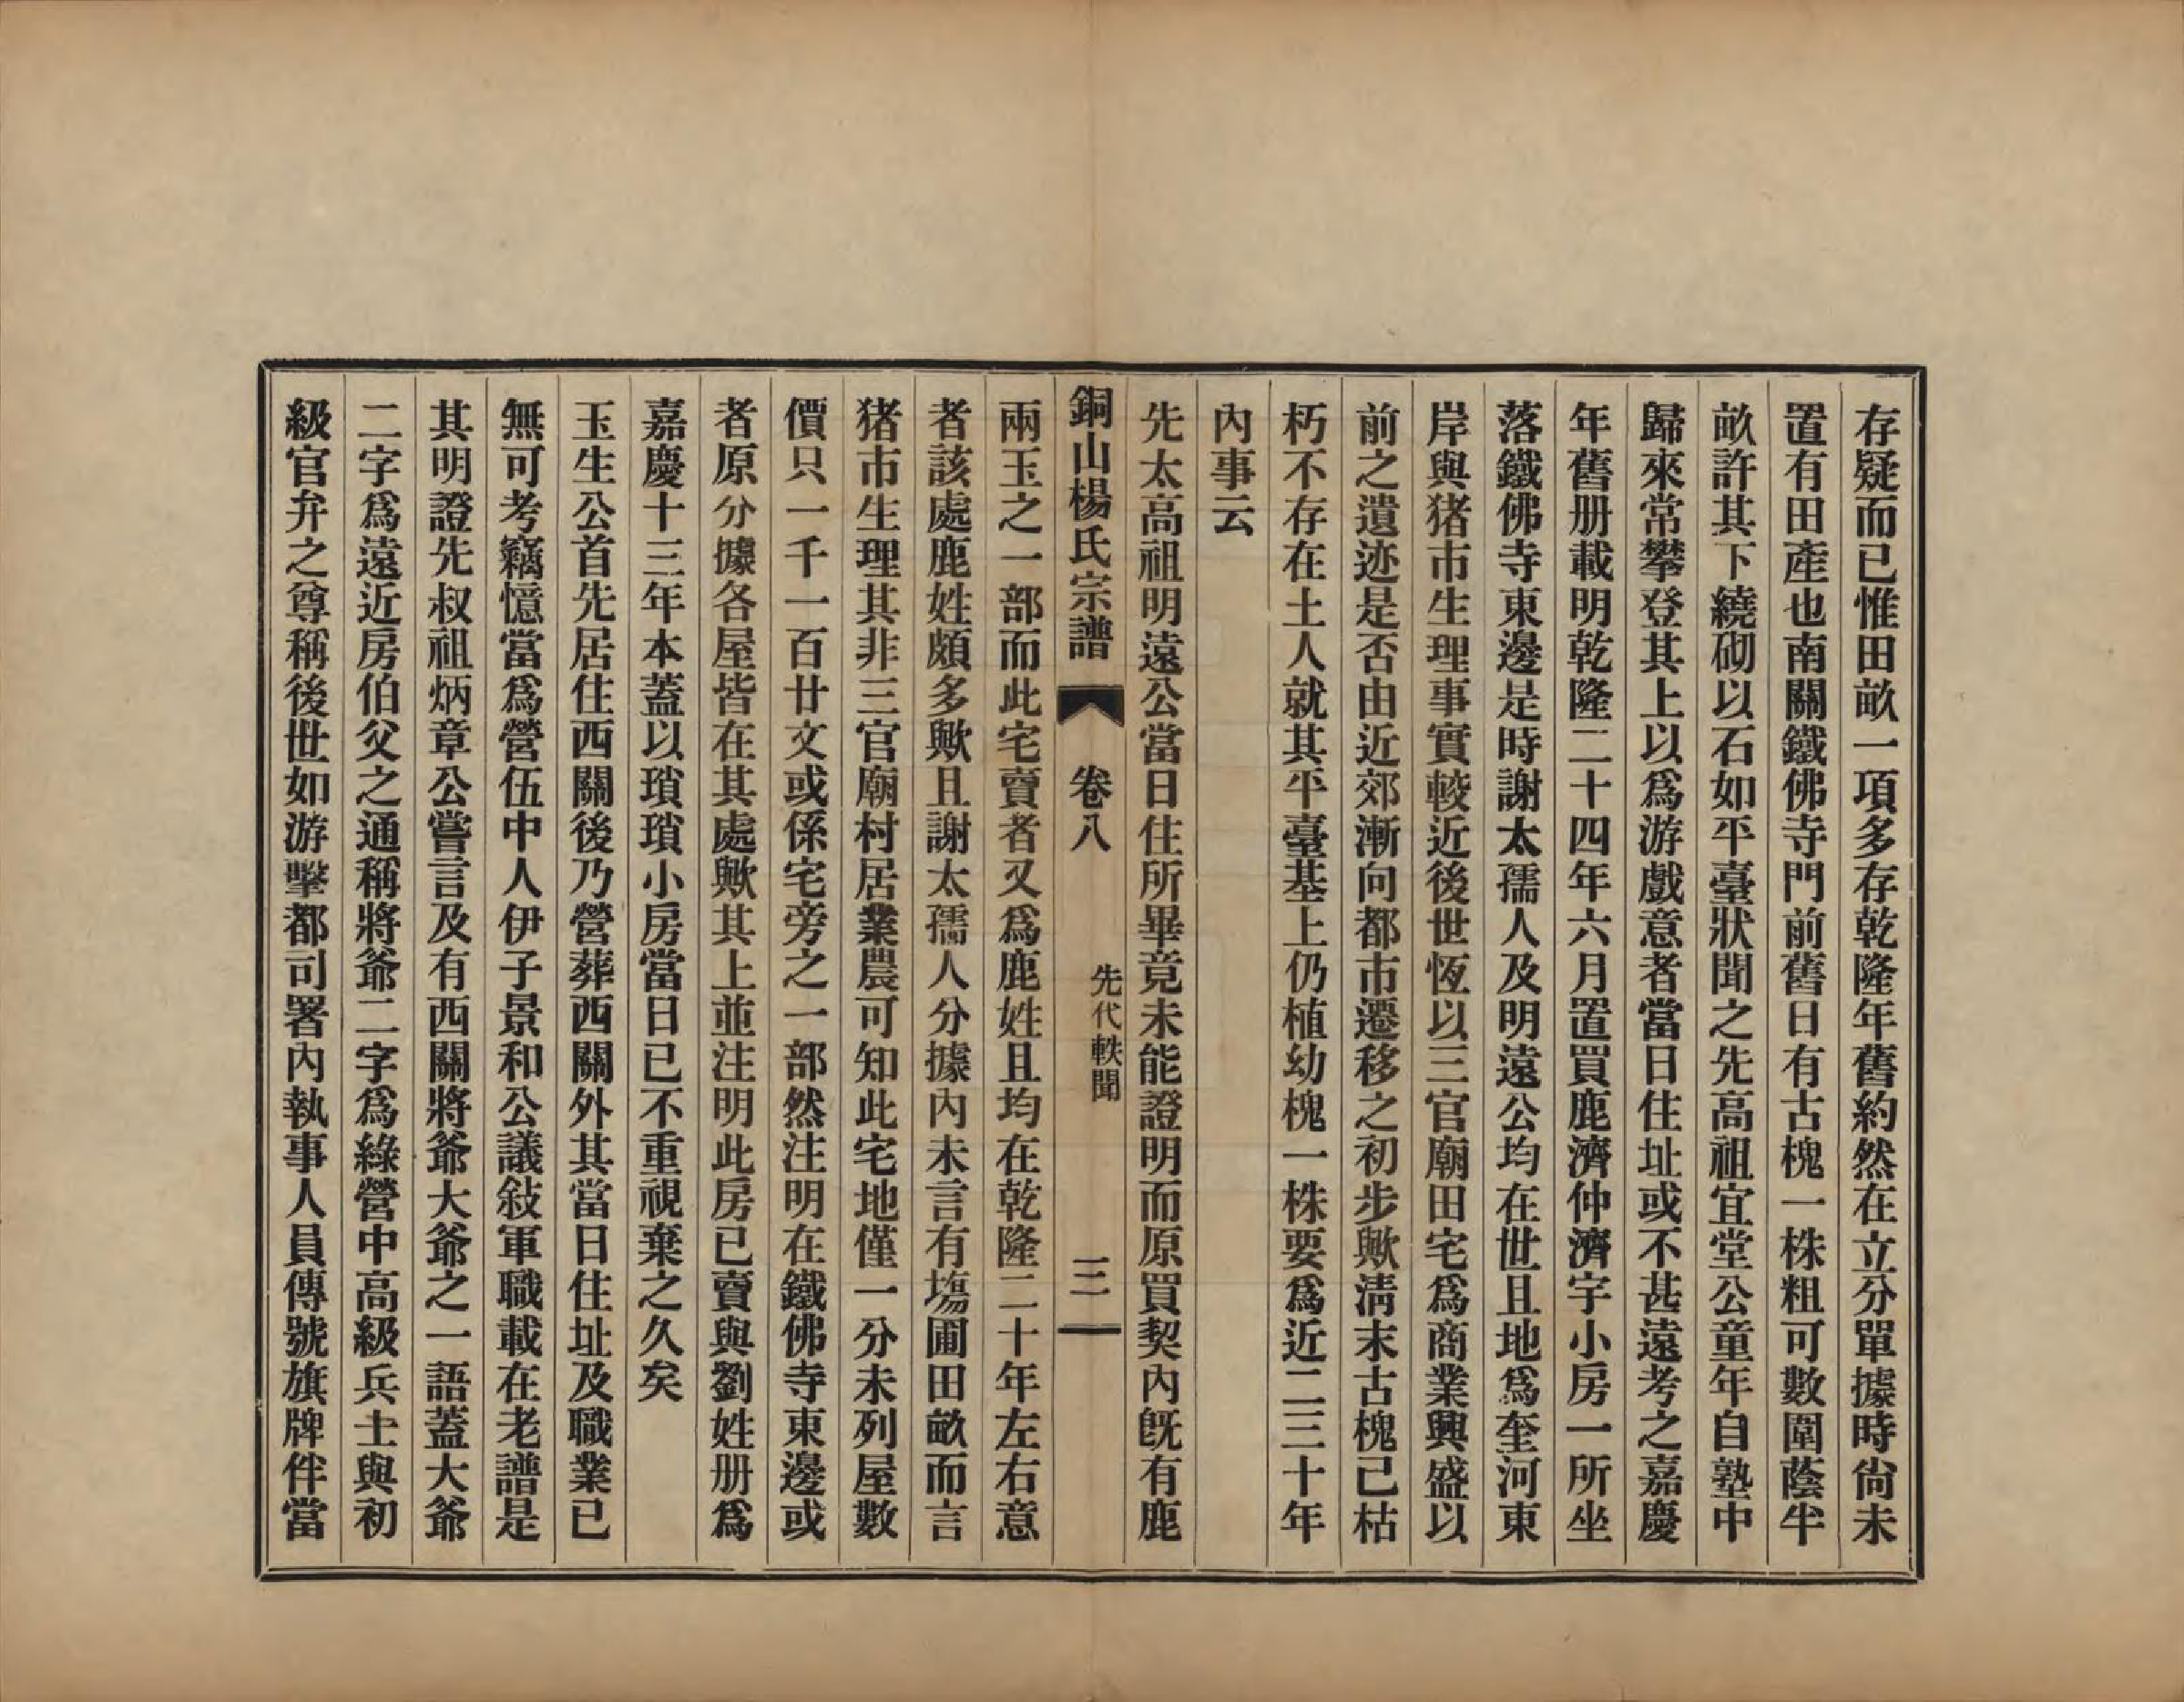 存疑而已惟田畝一項多存乾隆年舊約然在立分單據時尙未
置有田產也南關鐵佛寺門前舊日有古槐一株粗可數圍蔭半
畝許其下繞砌以石如平臺狀聞之先高祖宜堂公童年自塾中
歸來常攀登其上以爲游戲意者當日住址或不甚遠考之嘉慶
年舊册載明乾隆二十四年六月置買鹿濟仲濟字小房一所坐
落鐵佛寺東邊是時謝太孺人及明遠公均在世且地爲奎河東
岸與猪市生理事實較近後世恆以三官廟田宅爲商業興盛以
前之遺迹是否由近郊漸向都市遷移之初步歟清末古槐已枯
朽不存在土人就其平臺基上仍植幼槐一株要爲近二三十年
內事云
先太高祖明遠公當日住所畢竟未能證明而原買契內旣有鹿
銅山楊氏宗譜 卷八 先代軼聞 三
兩玉之一部而此宅賣者又爲鹿姓且均在乾隆二十年左右意
者該處鹿姓頗多歟且謝太孺人分據內未言有塲圃田畝而言
猪市生理其非三官廟村居業農可知此宅地僅一分未列屋數
價只一千一百廿文或係宅旁之一部然注明在鐵佛寺東邊或
者原分據各屋皆在其處歟其上並注明此房已賣與劉姓册爲
嘉慶十三年本蓋以瑣瑣小房當日已不重視棄之久矣
玉生公首先居住西關後乃營葬西關外其當日住址及職業已
無可考竊憶當爲營伍中人伊子景和公議敍軍職載在老譜是
其明證先叔祖炳章公嘗言及有西關將爺大爺之一語蓋大爺
二字爲遠近房伯父之通稱將爺二字爲綠營中高級兵士與初
級官弁之尊稱後世如游擊都司署內執事人員傳號旗牌伴當